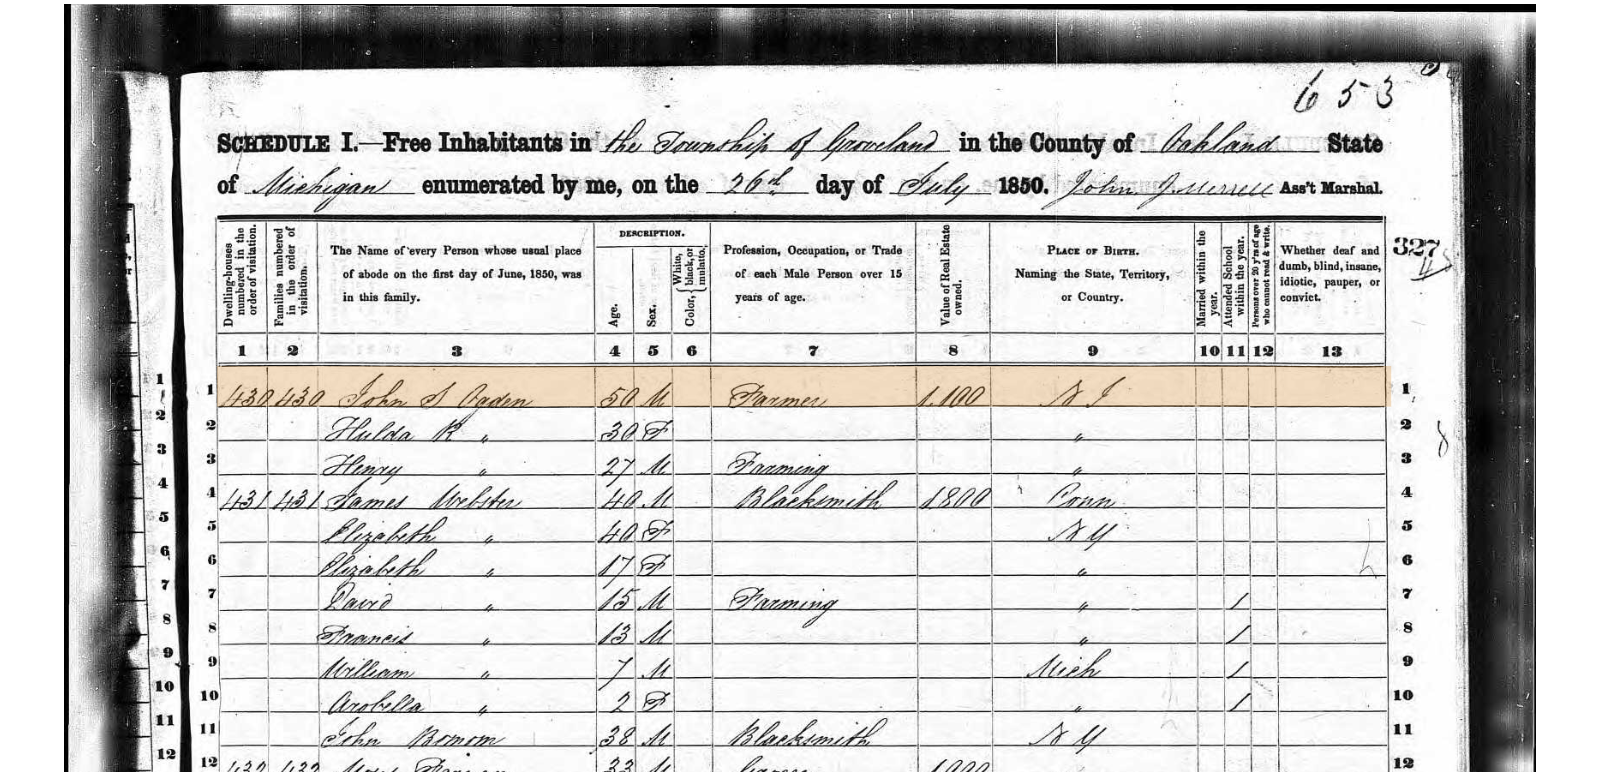 653
SCHEDULE I.—Free Inhabitants in the Township of Groveland in the County of Oakland State
of Michigan enumerated by me, on the 26th day of July 1850. John J Merrell Ass't Marshal.
Dwelling-houses numbered in the order of visitation.
Families numbered in the order of visitation.
The Name of every Person whose usual place of abode on the first day of June, 1850, was in this family.
DESCRIPTION.
Age.
Sex.
Color, { White, black, or mulatto.
Profession, Occupation, or Trade of each Male Person over 15 years of age.
Value of Real Estate owned.
PLACE OF BIRTH. Naming the State, Territory, or Country.
Married within the year.
Attended School within the year.
Persons over 20 y'rs of age who cannot read & write.
Whether deaf and dumb, blind, insane, idiotic, pauper, or convict.
327
1 2 3 4 5 6 7 8 9 10 11 12 13
1 430 430 John S Ogden 50 M Farmer 1.100 N J 1
2 Hulda R " 30 F " 2
3 Henry " 27 M Farming " 3
4 431 431 James Webster 40 M Blacksmith 1800 Conn 4
5 Elizabeth " 40 F N Y 5
6 Elizabeth " 17 F " 6
7 David " 15 M Farming " / 7
8 Francis " 13 M " / 8
9 William " 7 M Mich / 9
10 Arobella " 2 F " / 10
11 John 38 M Blacksmith N Y 11
12 432 432 33 M 1000 12
1
2
3
4
5
6
7
8
9
10
11
12